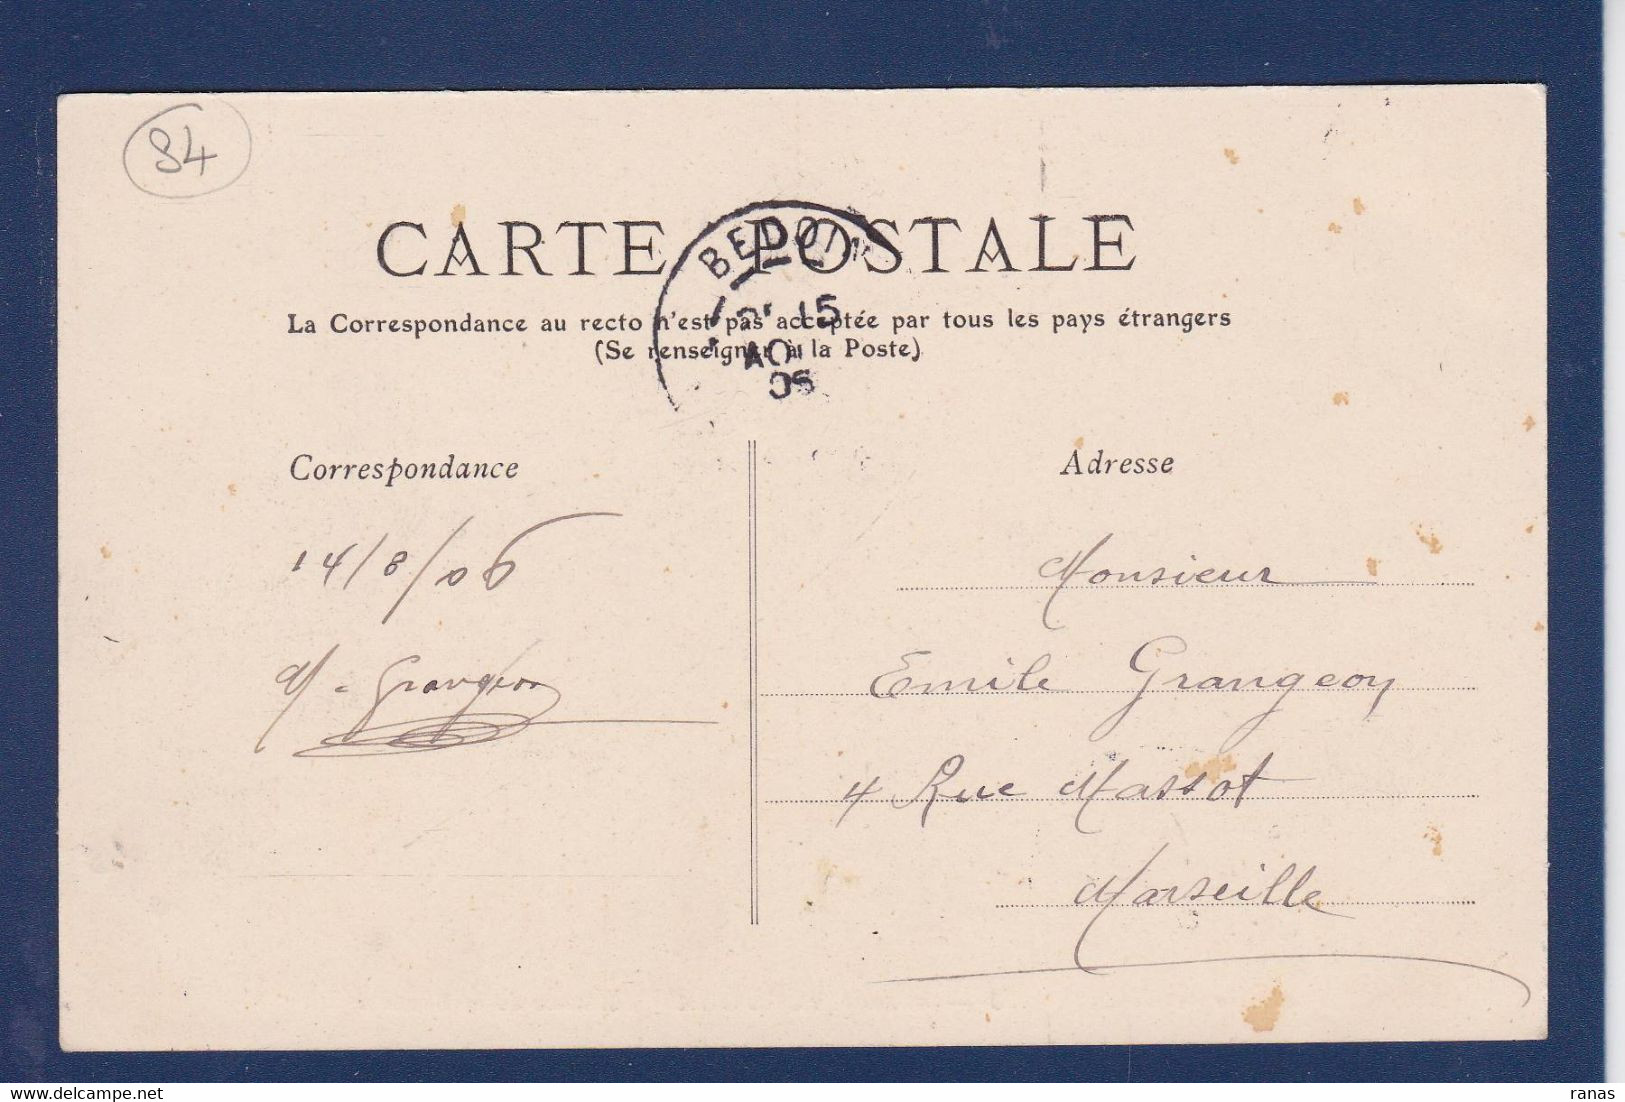 84
CARTE POSTALE
BEDOIN
15
AO
06
La Correspondance au recto n'est pas acceptée par tous les pays étrangers
(Se renseigner à la Poste)
Correspondance
14/8/06
Grangeon
Adresse
Monsieur
Emile Grangeon
4 Rue Massot
Marseille
ranas